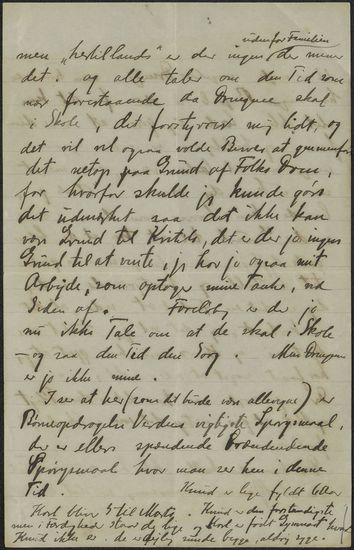 udenfor Familien
men "hertillands" er der ingen der mener
det. og alle taler om den Tid som
nær forestaaende da Drengene skal
i Skole, det forstyrrer mig lidt, og
det vil vel ogsaa volde Besvær at gennemføre
det netop paa Grund af Folks Dom,
for hvorfor skulde jeg kunde gøre
det udmærket saa det ikke kan
være Grund til Kritik, det er der jo ingen
Grund til at vente, jeg har jo ogsaa mit
Arbejde, som optager mine Tanker, ved
Siden af. Foreløbig er der jo
nu ikke Tale om at de skal i Skole
- og saa den Tid den Sorg. Men Drengene
er jo ikke mine.
I ser at her (som det burde være allevegne) er
Børneopdragelse Verdens vigtigste Spørgsmaal,
der er ellers spændende
Spørgsmaale hvor man ser hen i denne
Tid. Knud er lige fyldt 6 Aar
Karl bliver 5 til Marts. Knud er den forstandigste
men i Færdighed staar de lige og Karl er først
Knud ikke er. de er dejlig sunde begge, aldrig syge.